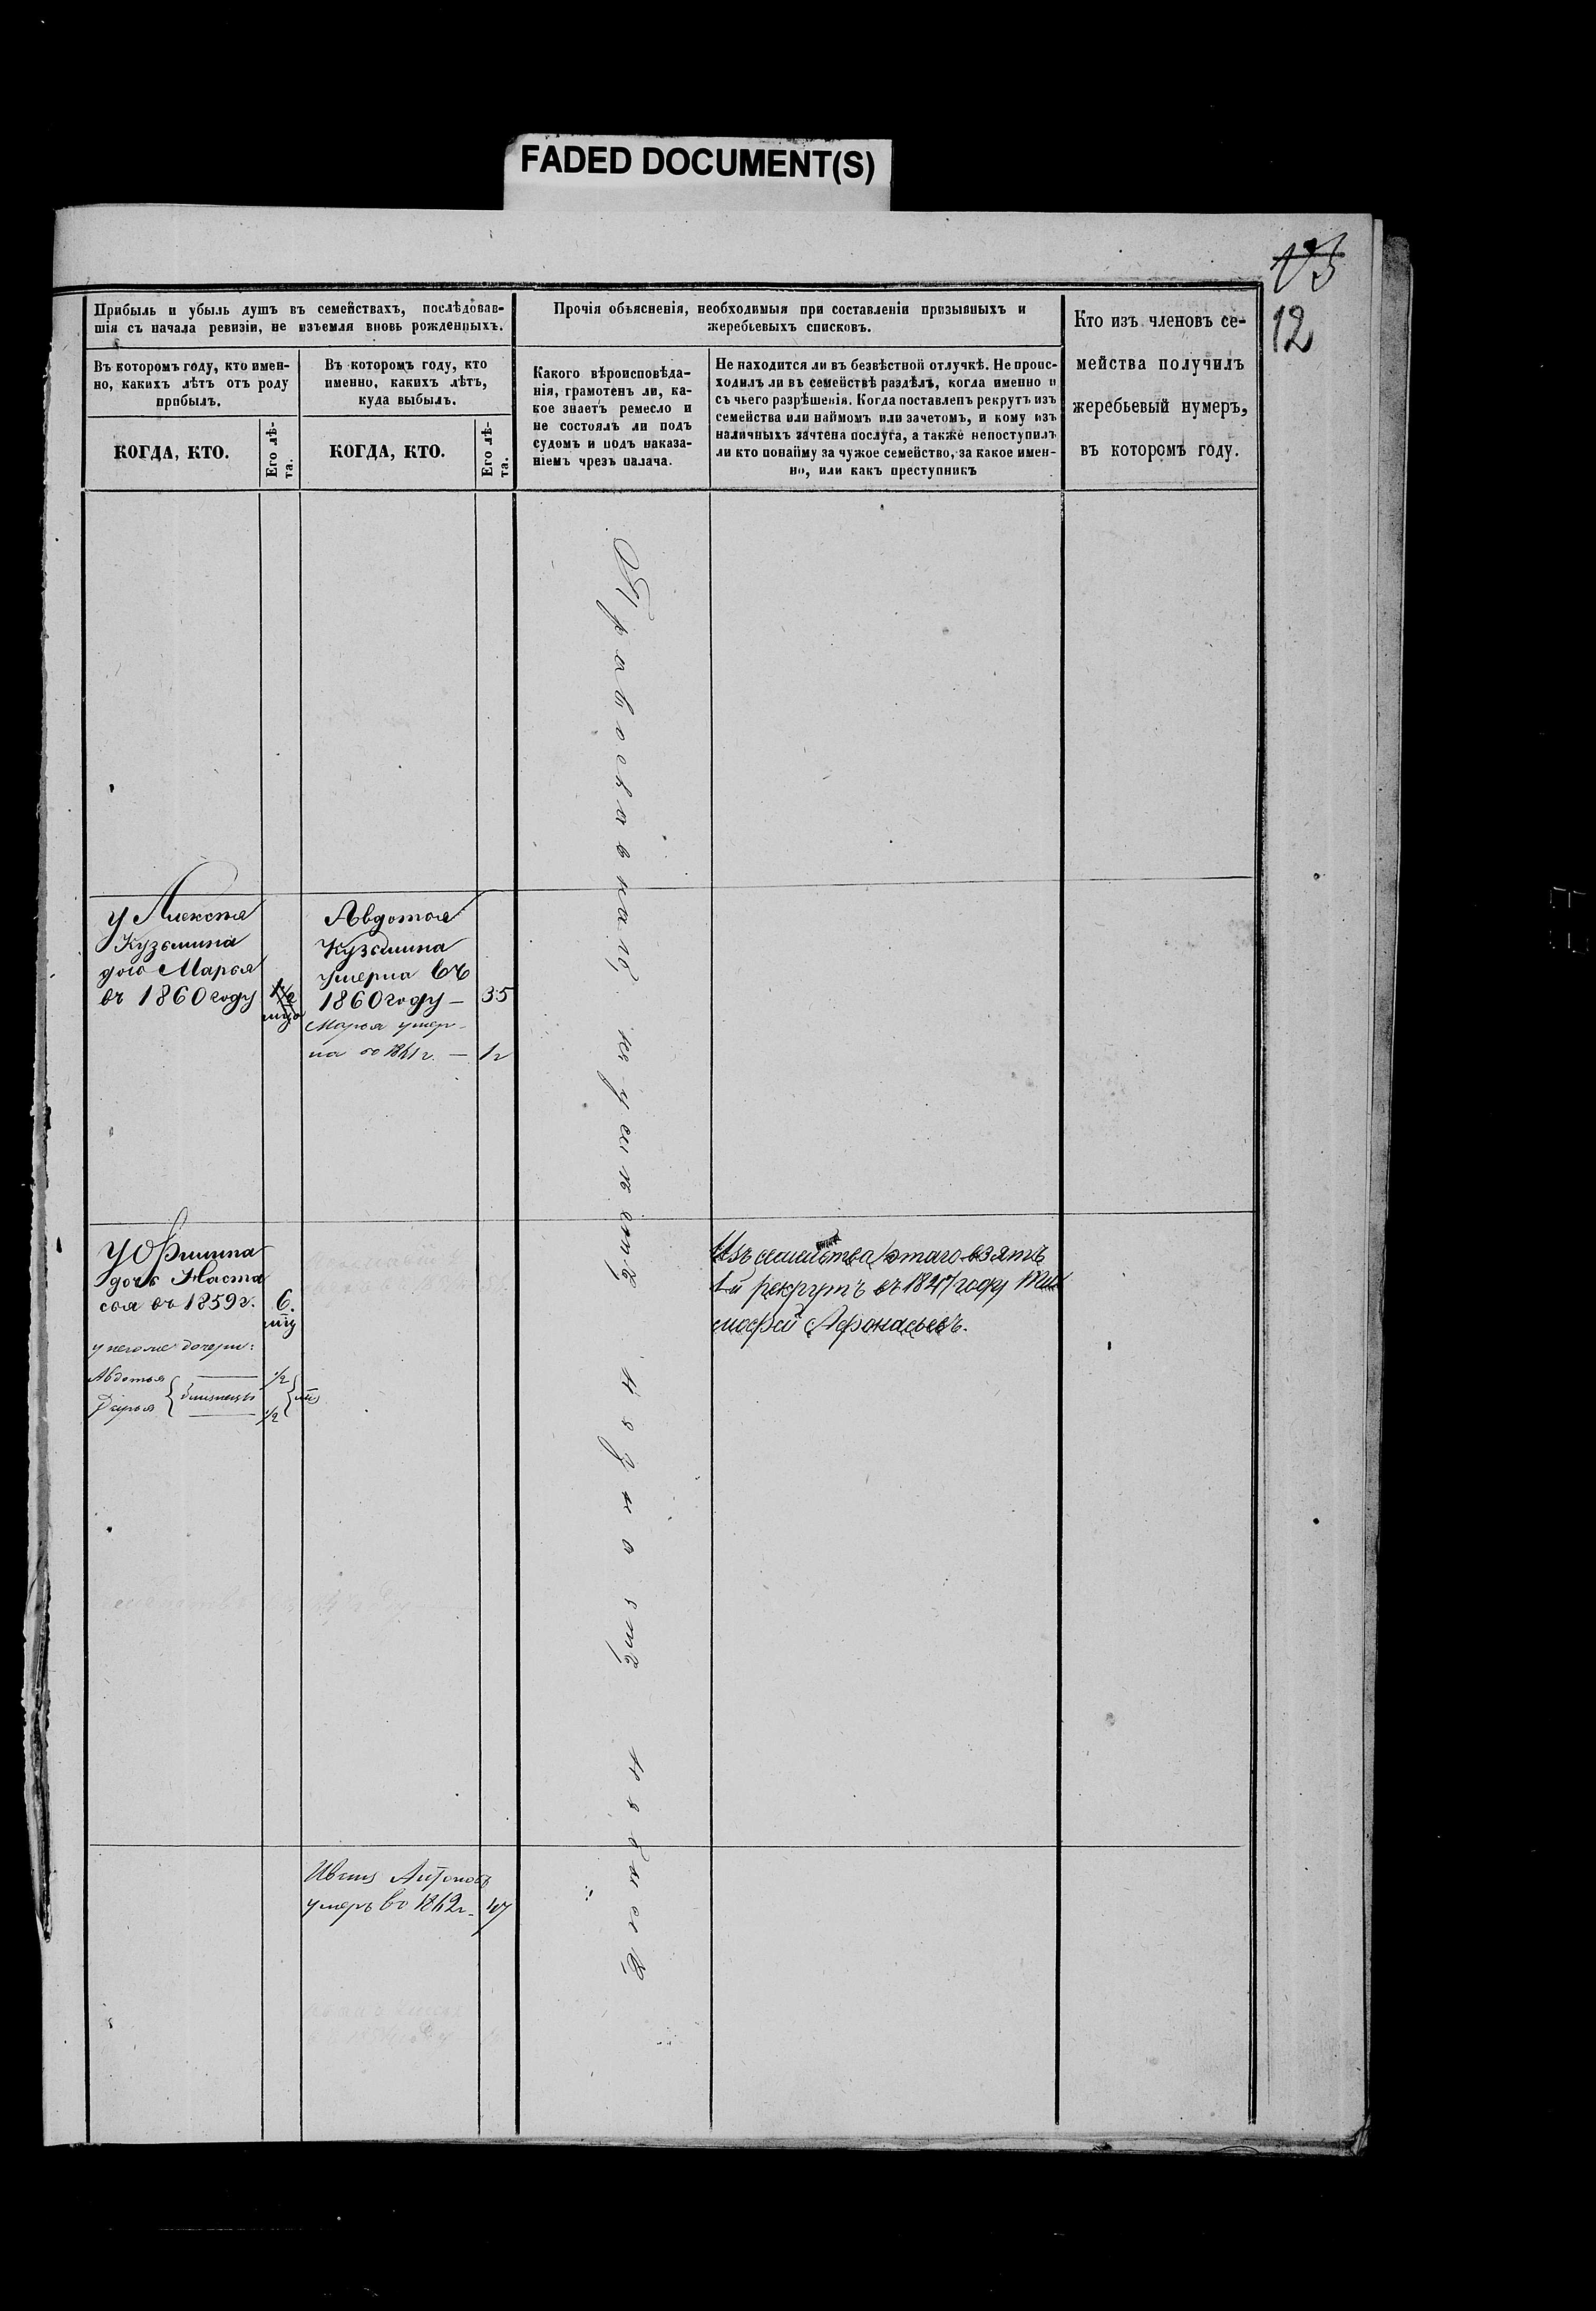 FADED DOCUMENT(S)
12
Прибыль и убыль душъ въ семействахъ, послѣдовав-
шія съ начала ревизіи, не изъемля вновь рожденныхъ.
Въ которомъ году, кто имен-
но, какихъ лѣтъ отъ роду
прибылъ.
КОГДА, КТО.
Его лѣ-
та.
Въ которомъ году, кто
именно, какихъ лѣтъ,
куда выбылъ.
КОГДА, КТО.
Его лѣ-
та.
Прочія объясненія, необходимыя при составленіи призывныхъ и
жеребьевыхъ списковъ.
Какого вѣроисповѣда-
нія, грамотенъ ли, ка-
кое знаетъ ремесло и
не состоялъ ли подъ
судомъ и подъ наказа-
ніемъ чрезъ палача.
Не находится ли въ безвѣстной отлучкѣ. Не проис-
ходилъ ли въ семействѣ раздѣлъ, когда именно и
съ чьего разрѣшенія. Когда поставленъ рекрутъ изъ
семейства или наймомъ или зачетомъ, и кому изъ
наличныхъ зачтена послуга, а также непоступилъ
ли кто понайму за чужое семейство, за какое имен-
но, или какъ преступникъ
Кто изъ членовъ се-
мейства получилъ
жеребьевый нумеръ,
въ которомъ году.
у Алексѣя
Кузьмина
дочь Марья
въ 1860 году
Авдотья
Кузьмина
умерла въ
1860 году — 35
Марья умер-
ла въ 1861 г. —
У Филипа
дочь Наста
сья въ 1859 г. 6.
у него же дочери:
Авдотья 1/2
Дарья близнецы 1/2
Изъ семейства этаго взятъ
1й рекрутъ въ 1847 году Ти
мофей Афонасьевъ.
Иванъ Антоновъ
умеръ въ 1862 г. 47